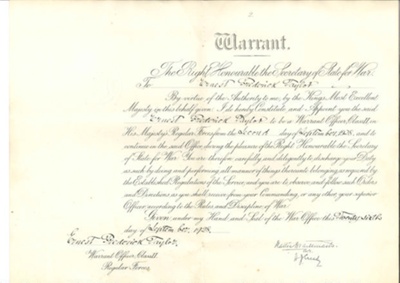 Warrant.
The Right Honourable the Secretary of State for War.
To Ernest Frederick Taylor
By virtue of the Authority to me, by the King's Most Excellent
Majesty in this behalf given, I do hereby Constitute and Appoint you the said
Ernest Frederick Taylor to be a Warrant Officer, Class II, in
His Majesty's Regular Forces from the Second day of September, 1938, and to
continue in the said Office during the pleasure of the Right Honourable the Secretary
of State for War. You are therefore carefully and diligently to discharge your Duty
as such by doing and performing all manner of things thereunto belonging as required by
the Established Regulations of the Service, and you are to observe and follow such Orders
and Directions as you shall receive from your Commanding, or any other, your superior
Officer, according to the Rules and Discipline of War.
Given under my Hand and Seal of the War Office this
day of September, 1938.
Ernest Frederick Taylor
Warrant Officer, Class II
Regular Forces